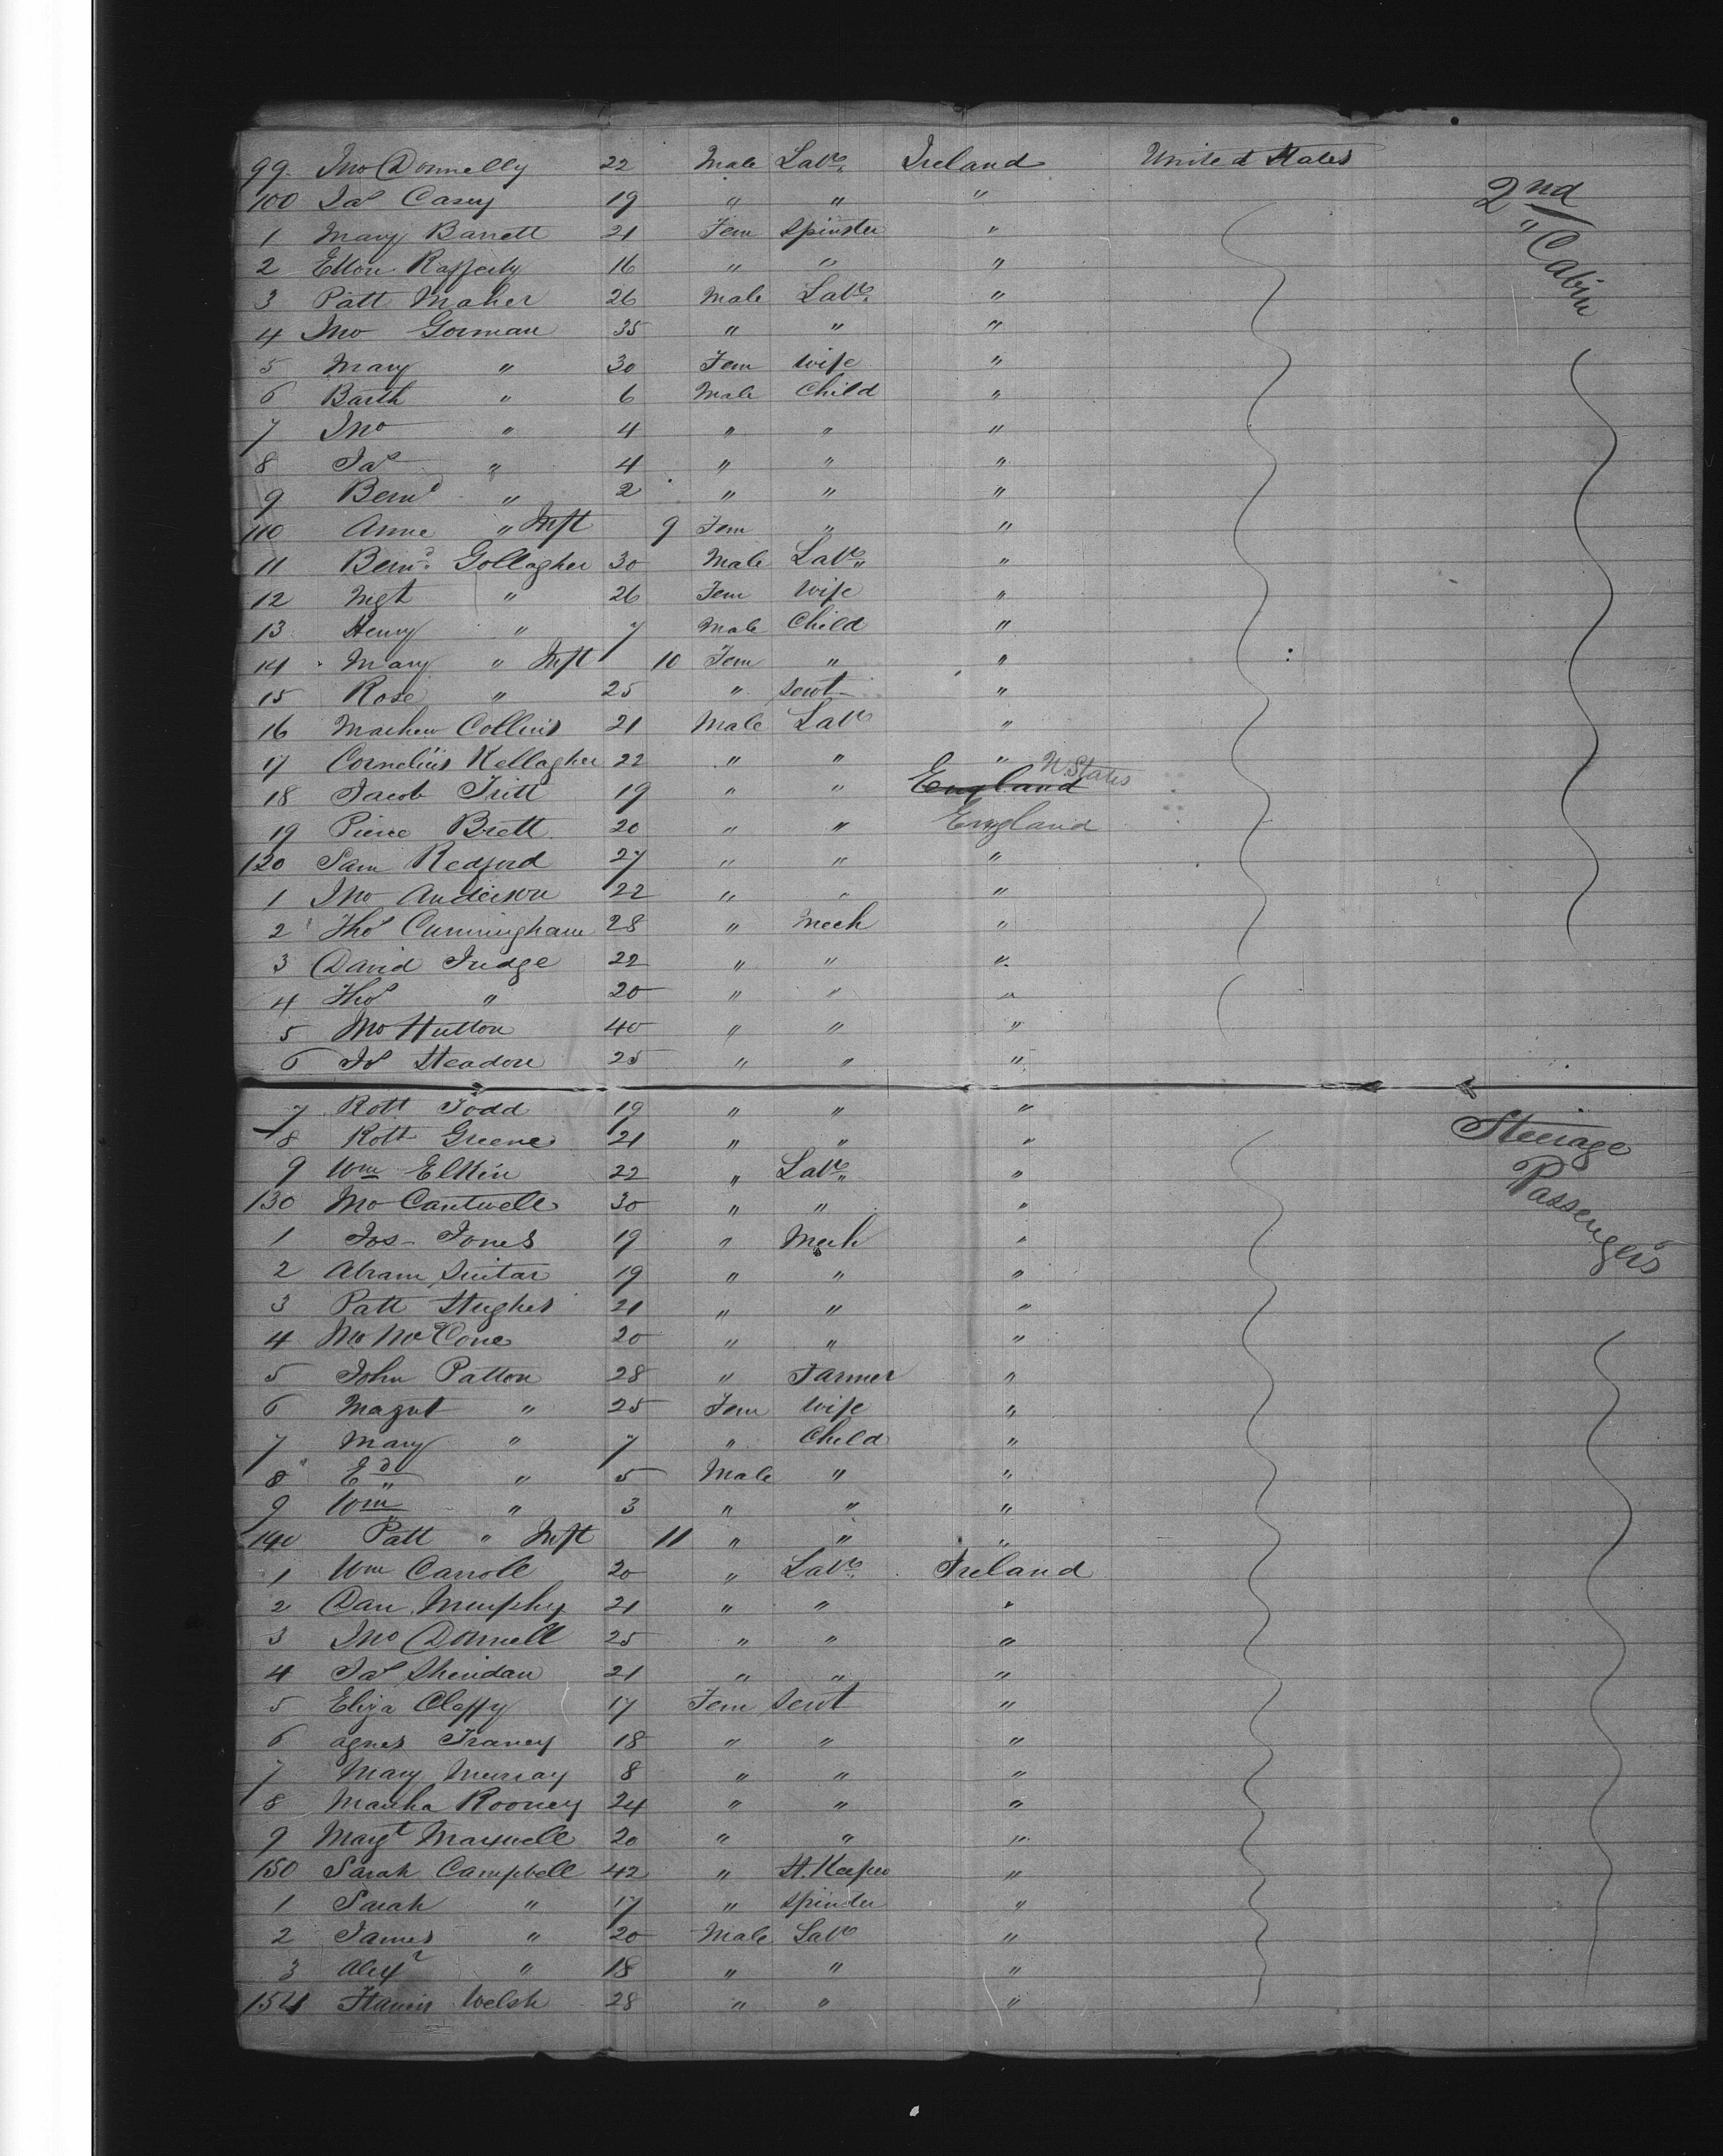 99. Jno Donnelly 22 Male Labr. Ireland United States
2nd
100 Jas Casey 19 " " "
1 Mary Barrett 21 Fem Spinster "
" Cabin
2 Ellen Rafferty 16 " " "
3 Patt Maher 26 Male Labr. "
4 Jno Gorman 35 " " "
5 Mary " 30 Fem Wife "
6 Barth " 6 Male Child "
7 Jno " 4 " " "
8 Jas " 4 " " "
9 Bernd " 2 " " "
110 Anne " Inft 9 Fem " "
11 Bernd. Gollagher 30 Male Labr "
12 Mgt " 26 Fem Wife "
13 Henry " 7 Male Child "
14 Mary " Inft 10 Fem " "
15 Rose " 25 " Servt "
16 Mathew Collins 21 Male Labr "
17 Cornelius Kellagher 22 " " "
18 Jacob Tritt 19 " " England U States
19 Pierce Brett 20 " " England
120 Sam Redford 27 " " "
1 Jno Anderson 22 " " "
2 Thos Cunningham 28 " Mech "
3 David Judge 22 " " "
4 Thos " 20 " " "
5 Jno Hutton 40 " " "
6 Js Headon 25 " " "
7 Robt Todd 19 " " "
Steerage
8 Robt Greene 21 " " "
9 Wm Elkin 22 " Labr "
Passengers
130 Jno Cantwell 30 " " "
1 Jos Jones 19 " Mech "
2 Abram 19 " " "
3 Patt Hughes 21 " " "
4 Jno McCone 20 " " "
5 John Patton 28 " Farmer "
6 Magrt " 25 Fem Wife "
7 Mary " 7 " Child "
8 Ed " 5 Male " "
9 Wm " 3 " " "
140 Patt " Inft 11 " " "
1 Wm Carroll 20 " Labr Ireland
2 Dan Murphy 21 " " "
3 Jno Donnell 25 " " "
4 Jas Sheridan 21 " " "
5 Eliza Claffy 17 Fem Servt "
6 Agnes Traney 18 " " "
7 Mary Murray 8 " " "
8 Martha Rooney 24 " " "
9 Margt Maxwell 20 " " "
150 Sarah Campbell 42 " H. Keeper "
1 Sarah " 17 " Spinster "
2 James " 20 Male Labr "
3 Alexr " 18 " " "
154 Francis Welsh 28 " " "